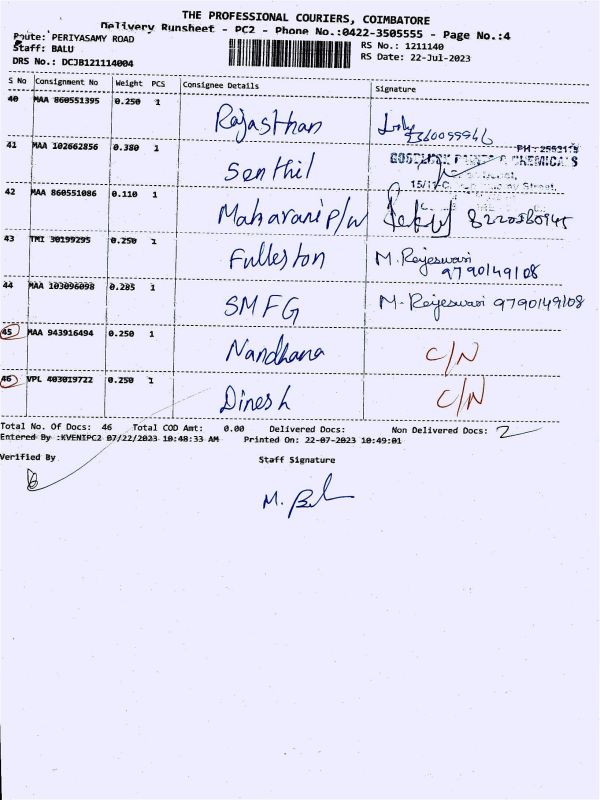 THE PROFESSIONAL COURIERS, COIMBATORE
Delivery Runsheet - PC2 - Phone No.:0422-3505555 - Page No.:4
Route: PERIYASAMY ROAD RS No.: 1211140
Staff: BALU RS Date: 22-Jul-2023
DRS No.: DCJB121114004
S No Consignment No Weight PCS Consignee Details Signature
40 MAA 860551395 0.250 1 Rajasthan
41 MAA 102662856 0.380 1 Senthil PH : 2552119
CHEMICALS
Street,
42 MAA 860551086 0.110 1 Maharani P/W
43 TMI 30199295 0.250 1 Fullerton M. Rajeswari
9790149108
44 MAA 103096098 0.285 1 SMFG M. Rajeswari 9790149108
45 MAA 943916494 0.250 1 Nandhana C/N
46 VPL 403019722 0.250 1 Dinesh C/N
Total No. Of Docs: 46 Total COD Amt: 0.00 Delivered Docs: Non Delivered Docs: 2
Entered By :KVENIPC2 07/22/2023 10:48:33 AM Printed On: 22-07-2023 10:49:01
Verified By Staff Signature